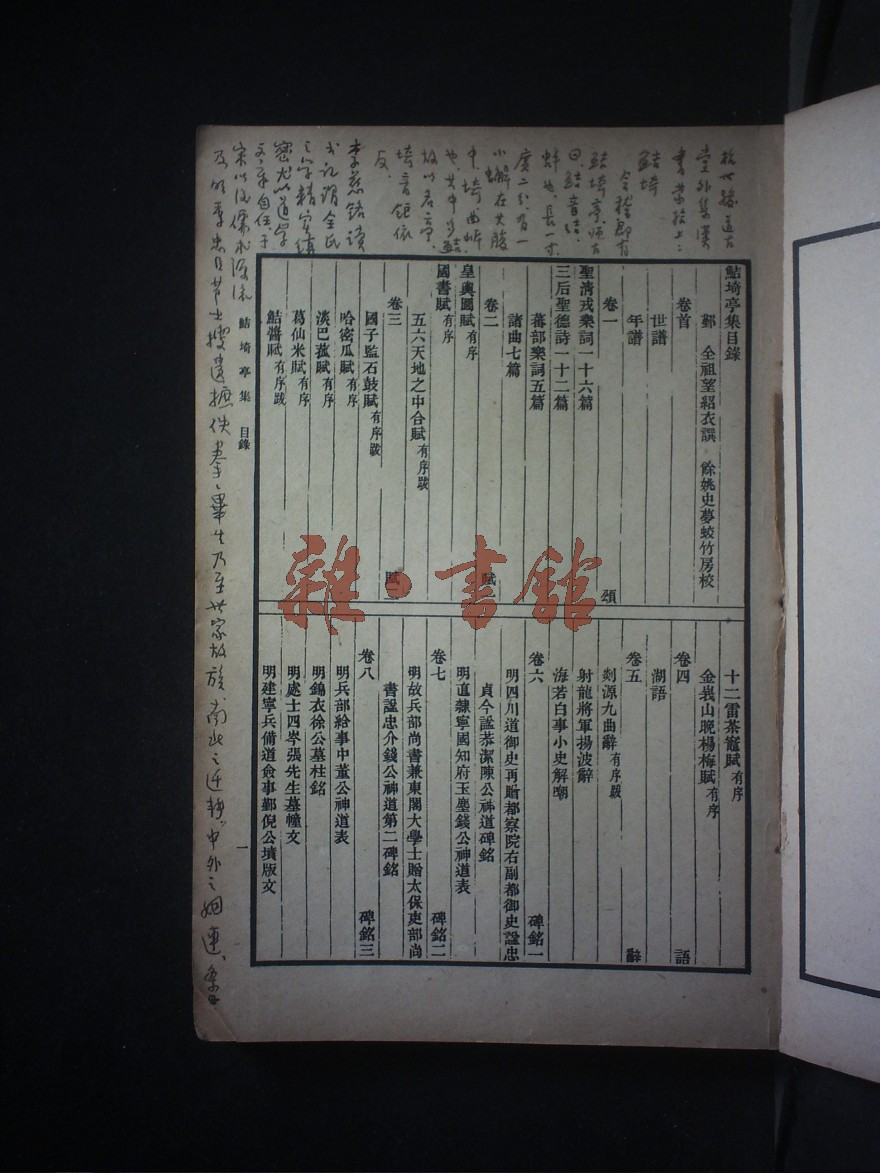 杭世駿道古
堂外集漢
書蒙拾上：
鮚埼
會稽鄞有
鮚埼亭師古
曰鮚音結
蚌也長一寸
廣二分有一
小蟹在其腹
中埼曲岸
也其中多鮚
故以名亭
埼音鉅依
反
李慈銘讀
書記謂全氏
之學精實縝
密尤以道學
文章自任于
宋以後儒
及明季忠臣節士搜遺摭佚畢生乃至世家故族南北之迁中外之姻連
鮚埼亭集目錄
鄞 全祖望紹衣譔 餘姚史夢蛟竹房校
卷首
世譜
年譜
卷一 頌
聖清戎樂詞一十六篇
三后聖德詩一十二篇
蕃部樂詞五篇
諸曲七篇
卷二 賦一
皇輿圖賦有序
國書賦有序
五六天地之中合賦有序跋
卷三 賦二
國子監石鼓賦有序跋
哈密瓜賦有序
淡巴菰賦有序
葛仙米賦有序
鮚醬賦有序跋
十二雷茶竈賦有序
金峩山晚楊梅賦有序
卷四 語
湖語
卷五 辭
剡源九曲辭有序跋
射龍將軍揚波辭
海若白事小史解嘲
卷六 碑銘一
明四川道御史再贈都察院右副都御史諡忠
貞今諡恭潔陳公神道碑銘
明直隸寧國知府玉塵錢公神道表
卷七 碑銘二
明故兵部尚書兼東閣大學士贈太保吏部尚
書諡忠介錢公神道第二碑銘
卷八 碑銘三
明兵部給事中董公神道表
明錦衣徐公墓柱銘
明處士四岑張先生墓幢文
明建寧兵備道僉事鄞倪公墳版文
鮚埼亭集 目錄 一
雜·書館